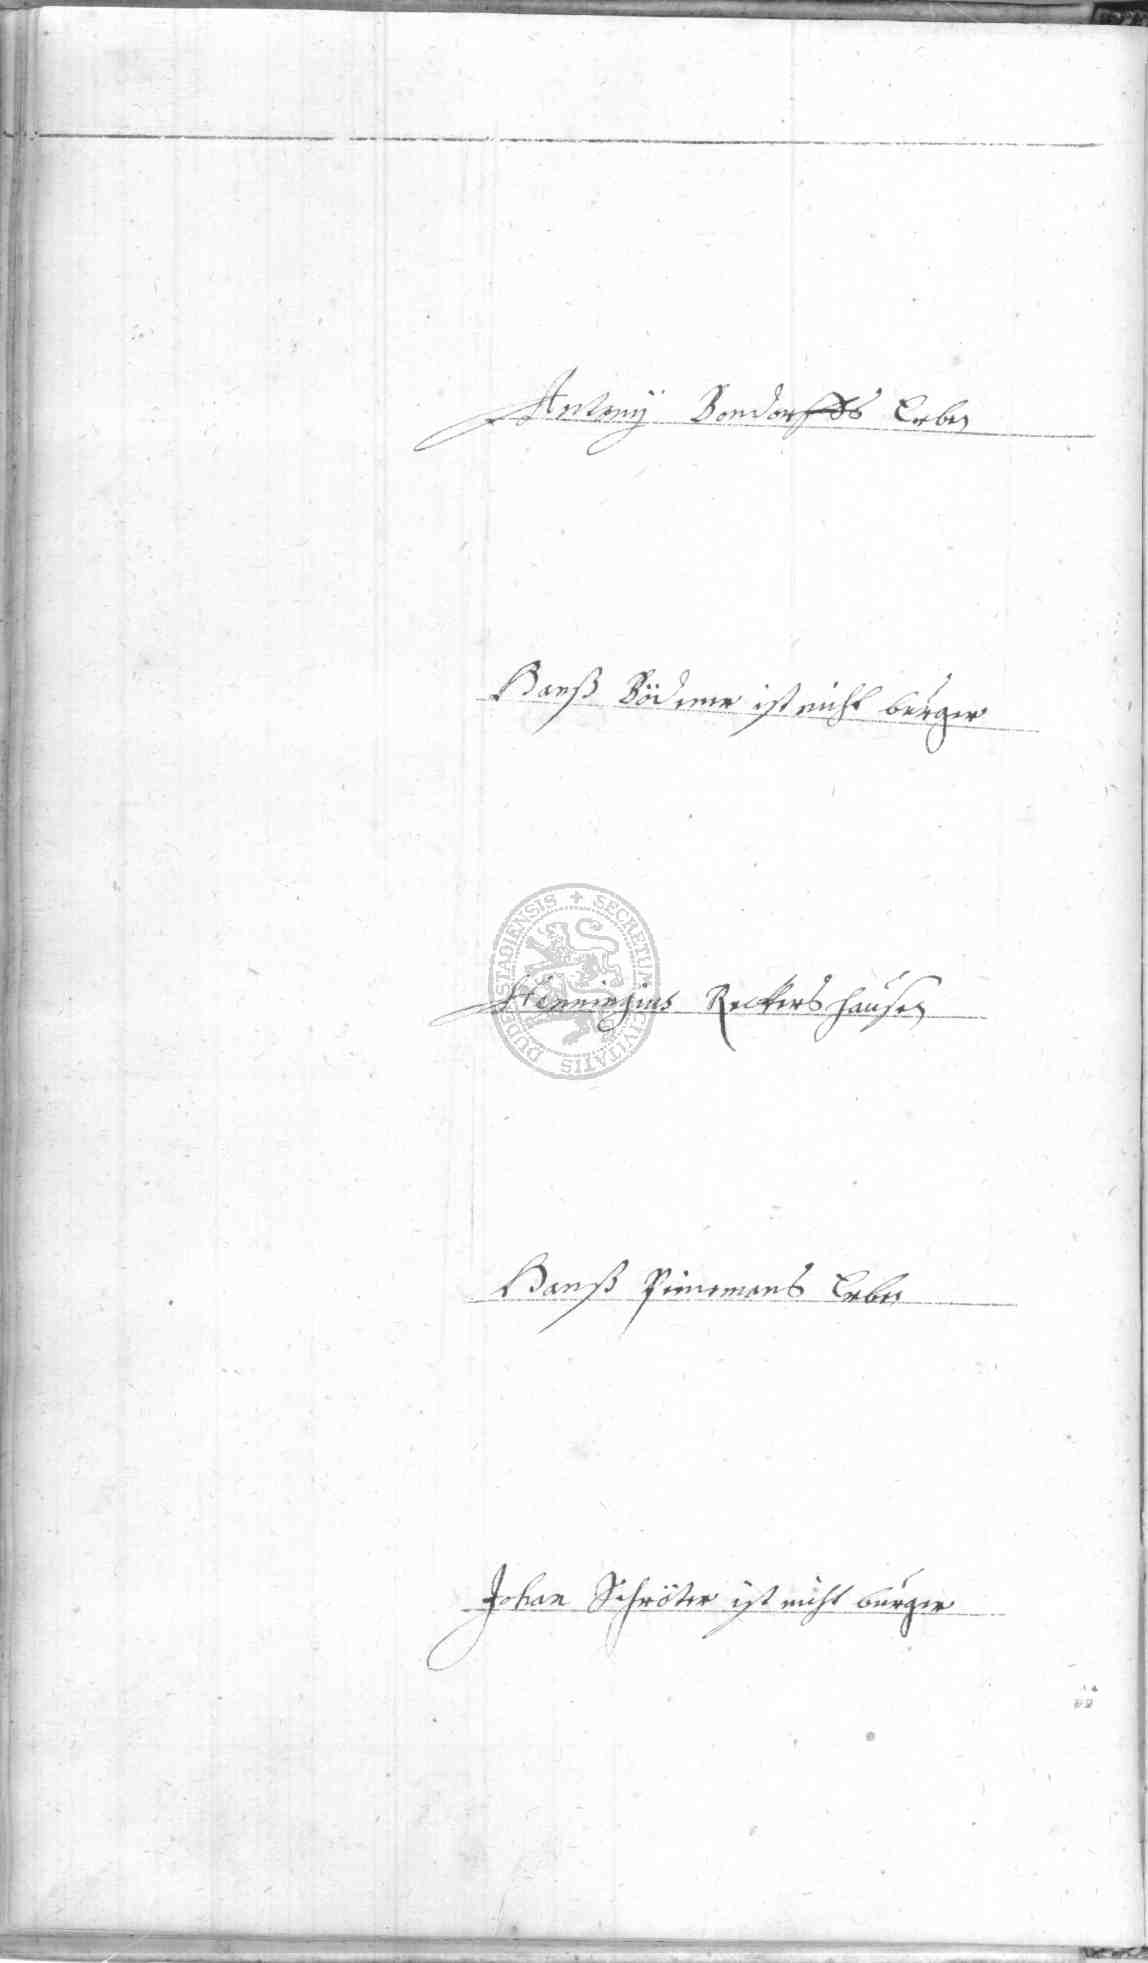 Antonÿ Bondorffs Erben
Hanß Bödener ist nicht burger
SECRETUM CIVITATIS DUDERSTADIENSIS
Henningius Reckershausen
Hanß Pinnemans Erben
Johan Schröter ist nicht burger